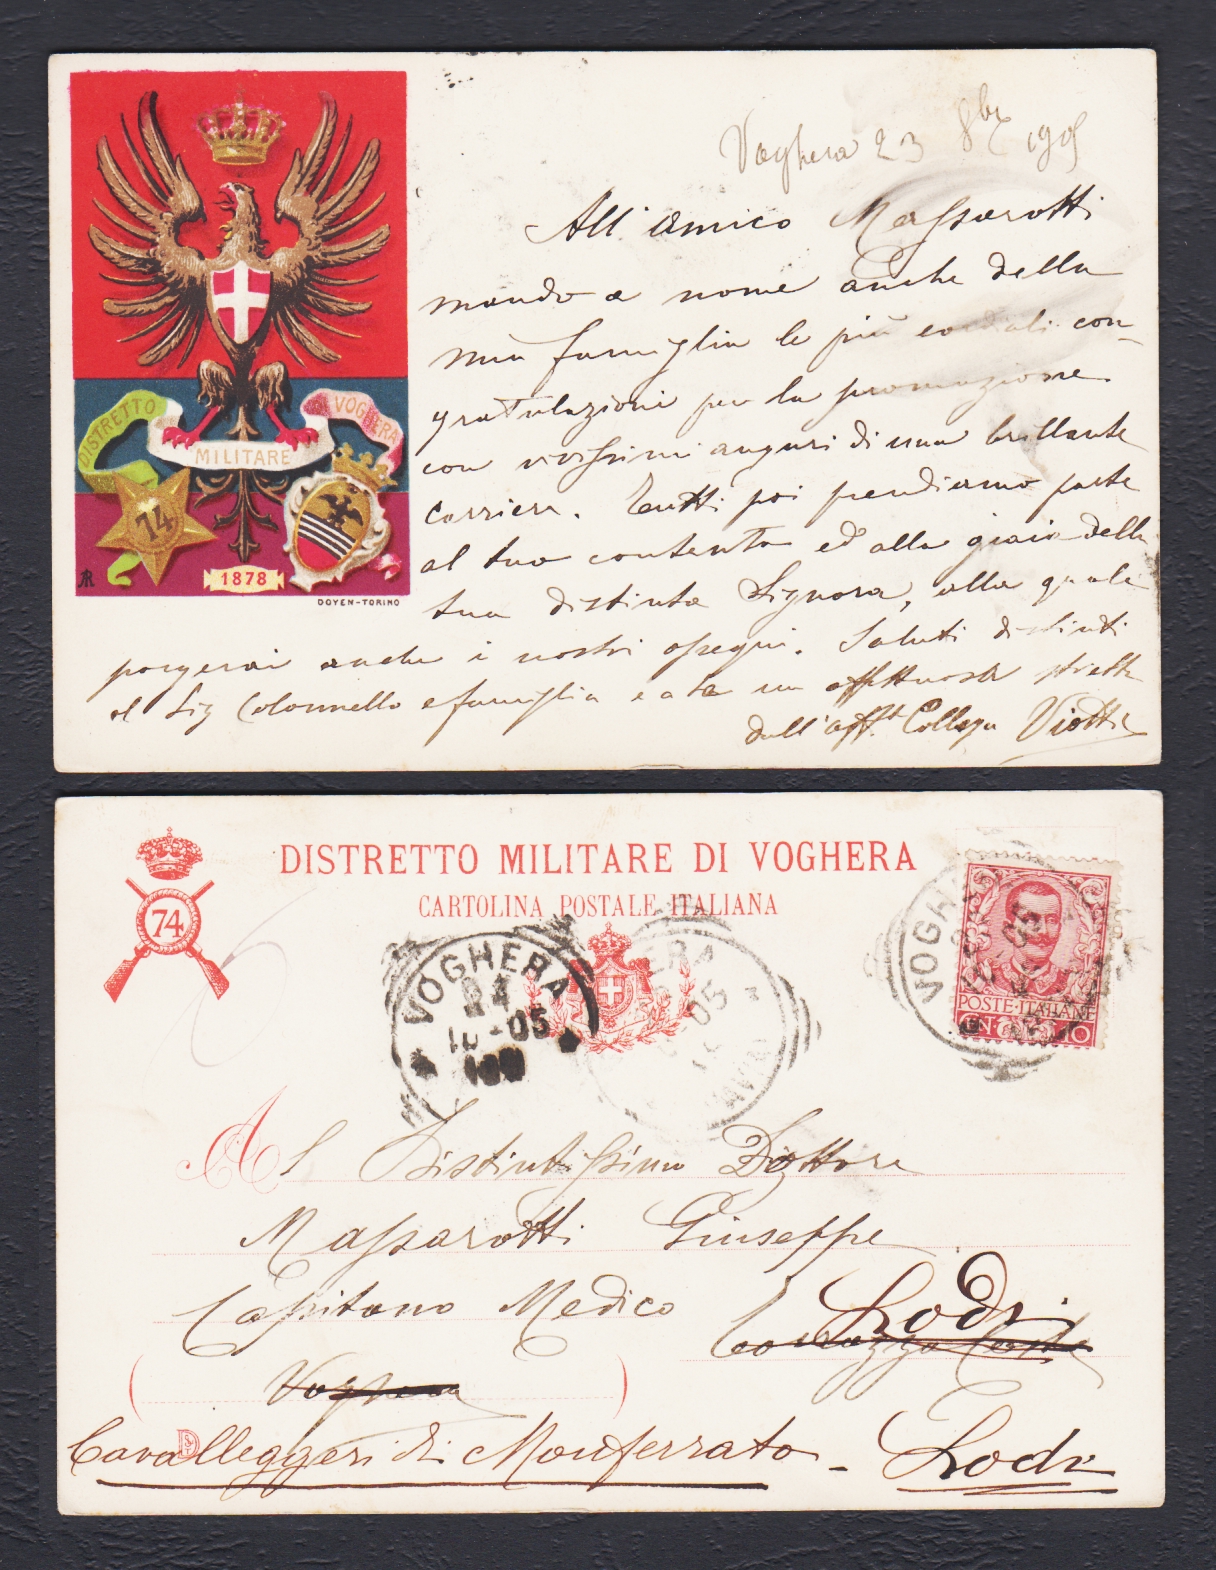 Voghera 23 8bre 1905
All'amico Massarotti
mando a nome anche della
mia famiglia le più cordiali con-
gratulazioni per la promozione
con vivissimi auguri di una brillante
carriera. Tutti poi prendiamo parte
al tuo contento ed alla gioia della
tua distinta Signora, alla quale
porgerai anche i nostri ossequi. Saluti distinti
al Sig Colonnello e famiglia e a te un affettuosa stretta
dall'afft. Collega Viotti
DISTRETTO
MILITARE
VOGHERA
74
1878
AR
DOYEN-TORINO
DISTRETTO MILITARE DI VOGHERA
CARTOLINA POSTALE ITALIANA
74
VOGHERA
24
10-05
VOGHERA
05
(PAVIA)
VOGHERA
05
POSTE·ITALIANE
CEN. 10
Al Distintissimo Dottore
Massarotti Giuseppe
Capitano Medico
Lodi
Voghera
Cavalleggeri di Monferrato - Lodi